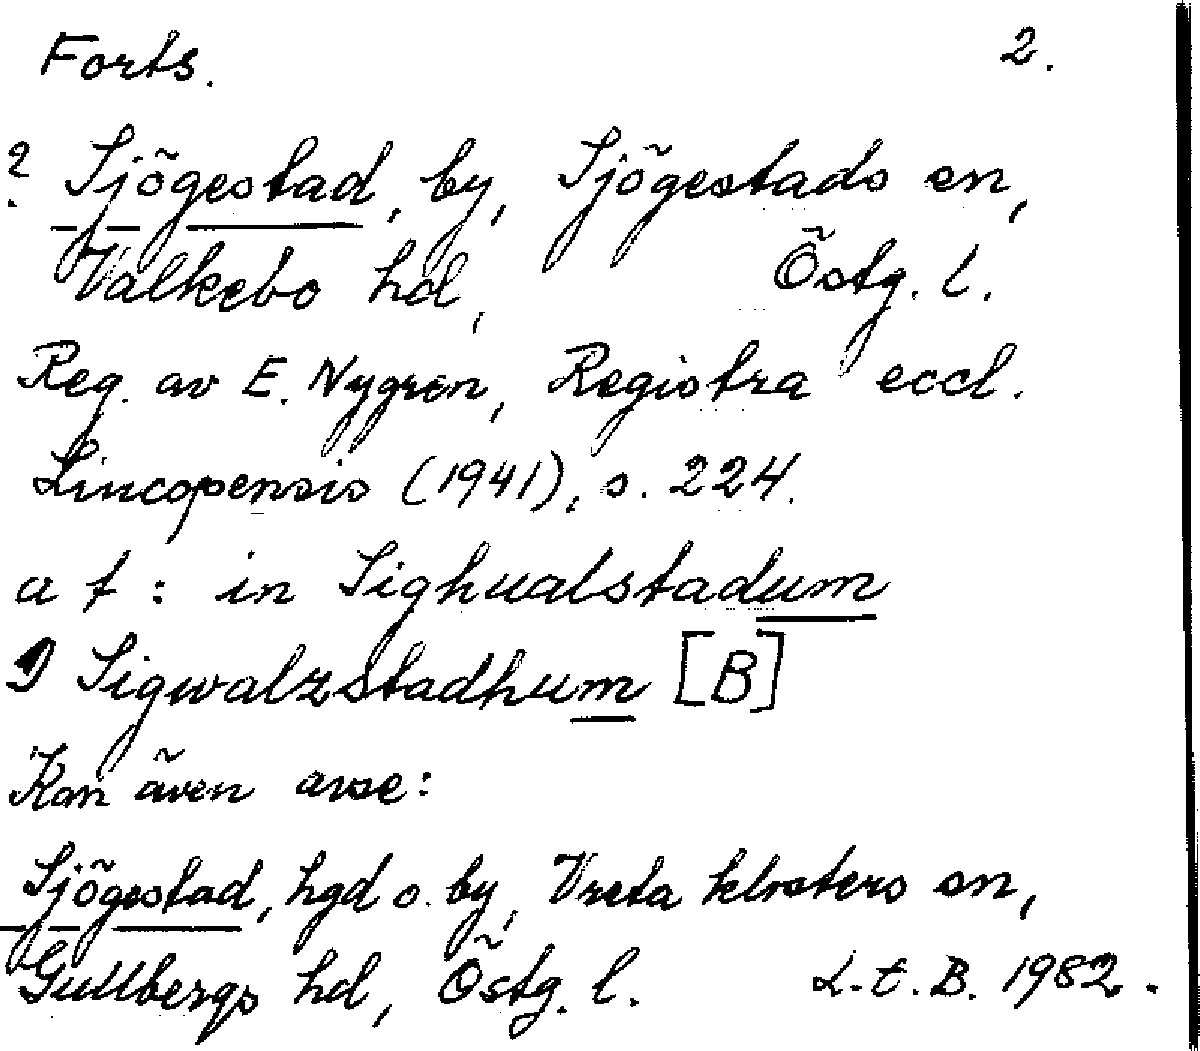 Forts. 2.
? Sjögestad, by, Sjögestads sn,
Valkebo hd, Östg. l.
Reg. av E. Nygren, Registra eccl.
Lincopensis (1941), s. 224.
a f: in Sighualstadum
Sigwalzstadhum [B]
Kan även avse:
Sjögestad, hgd o. by, Vreta klosters sn,
Gullbergs hd, Östg. l. L.t.B. 1982.